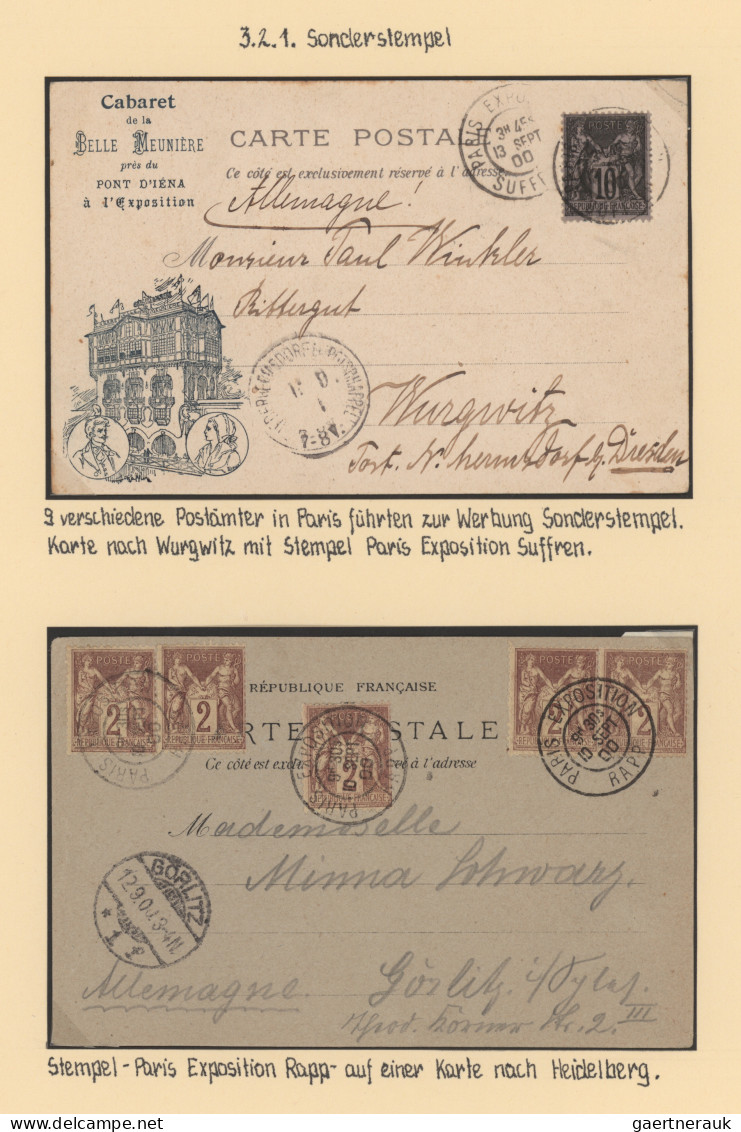 3.2.1. Sonderstempel
Cabaret
de la
BELLE MEUNIÈRE
près du
PONT D'IÉNA
à l'Exposition
CARTE POSTALE
Ce côté est exclusivement réservé à l'adresse
PARIS EXPO
3H 45S
13 SEPT
00
SUFFREN
POSTE
10
REPUBLIQUE FRANÇAISE
Allemagne!
Monsieur Paul Winkler
Rittergut
Wurgwitz
Post. N. hermsdorf b. Dresden
7-8V
9 verschiedene Postämter in Paris führten zur Werbung Sonderstempel.
Karte nach Wurgwitz mit Stempel Paris Exposition Suffren.
POSTE
2
REPUBLIQUE FRANÇAISE
POSTE
2
REPUBLIQUE FRANÇAISE
POSTE
2
POSTE
2
RÉPUBLIQUE FRANÇAISE
CARTE POSTALE
Ce côté est exclusivement réservé à l'adresse
2
PARIS EXPOSITION
10 SEPT
00
RAPP
PARIS
Mademoselle
Minna Schwarz
GÖRLITZ
12.9.00.3-4N.
* 1
Allemagne
Görlitz
Theod. Körner Str. 2 III
Stempel - Paris Exposition Rapp - auf einer Karte nach Heidelberg.
gaertnerauk